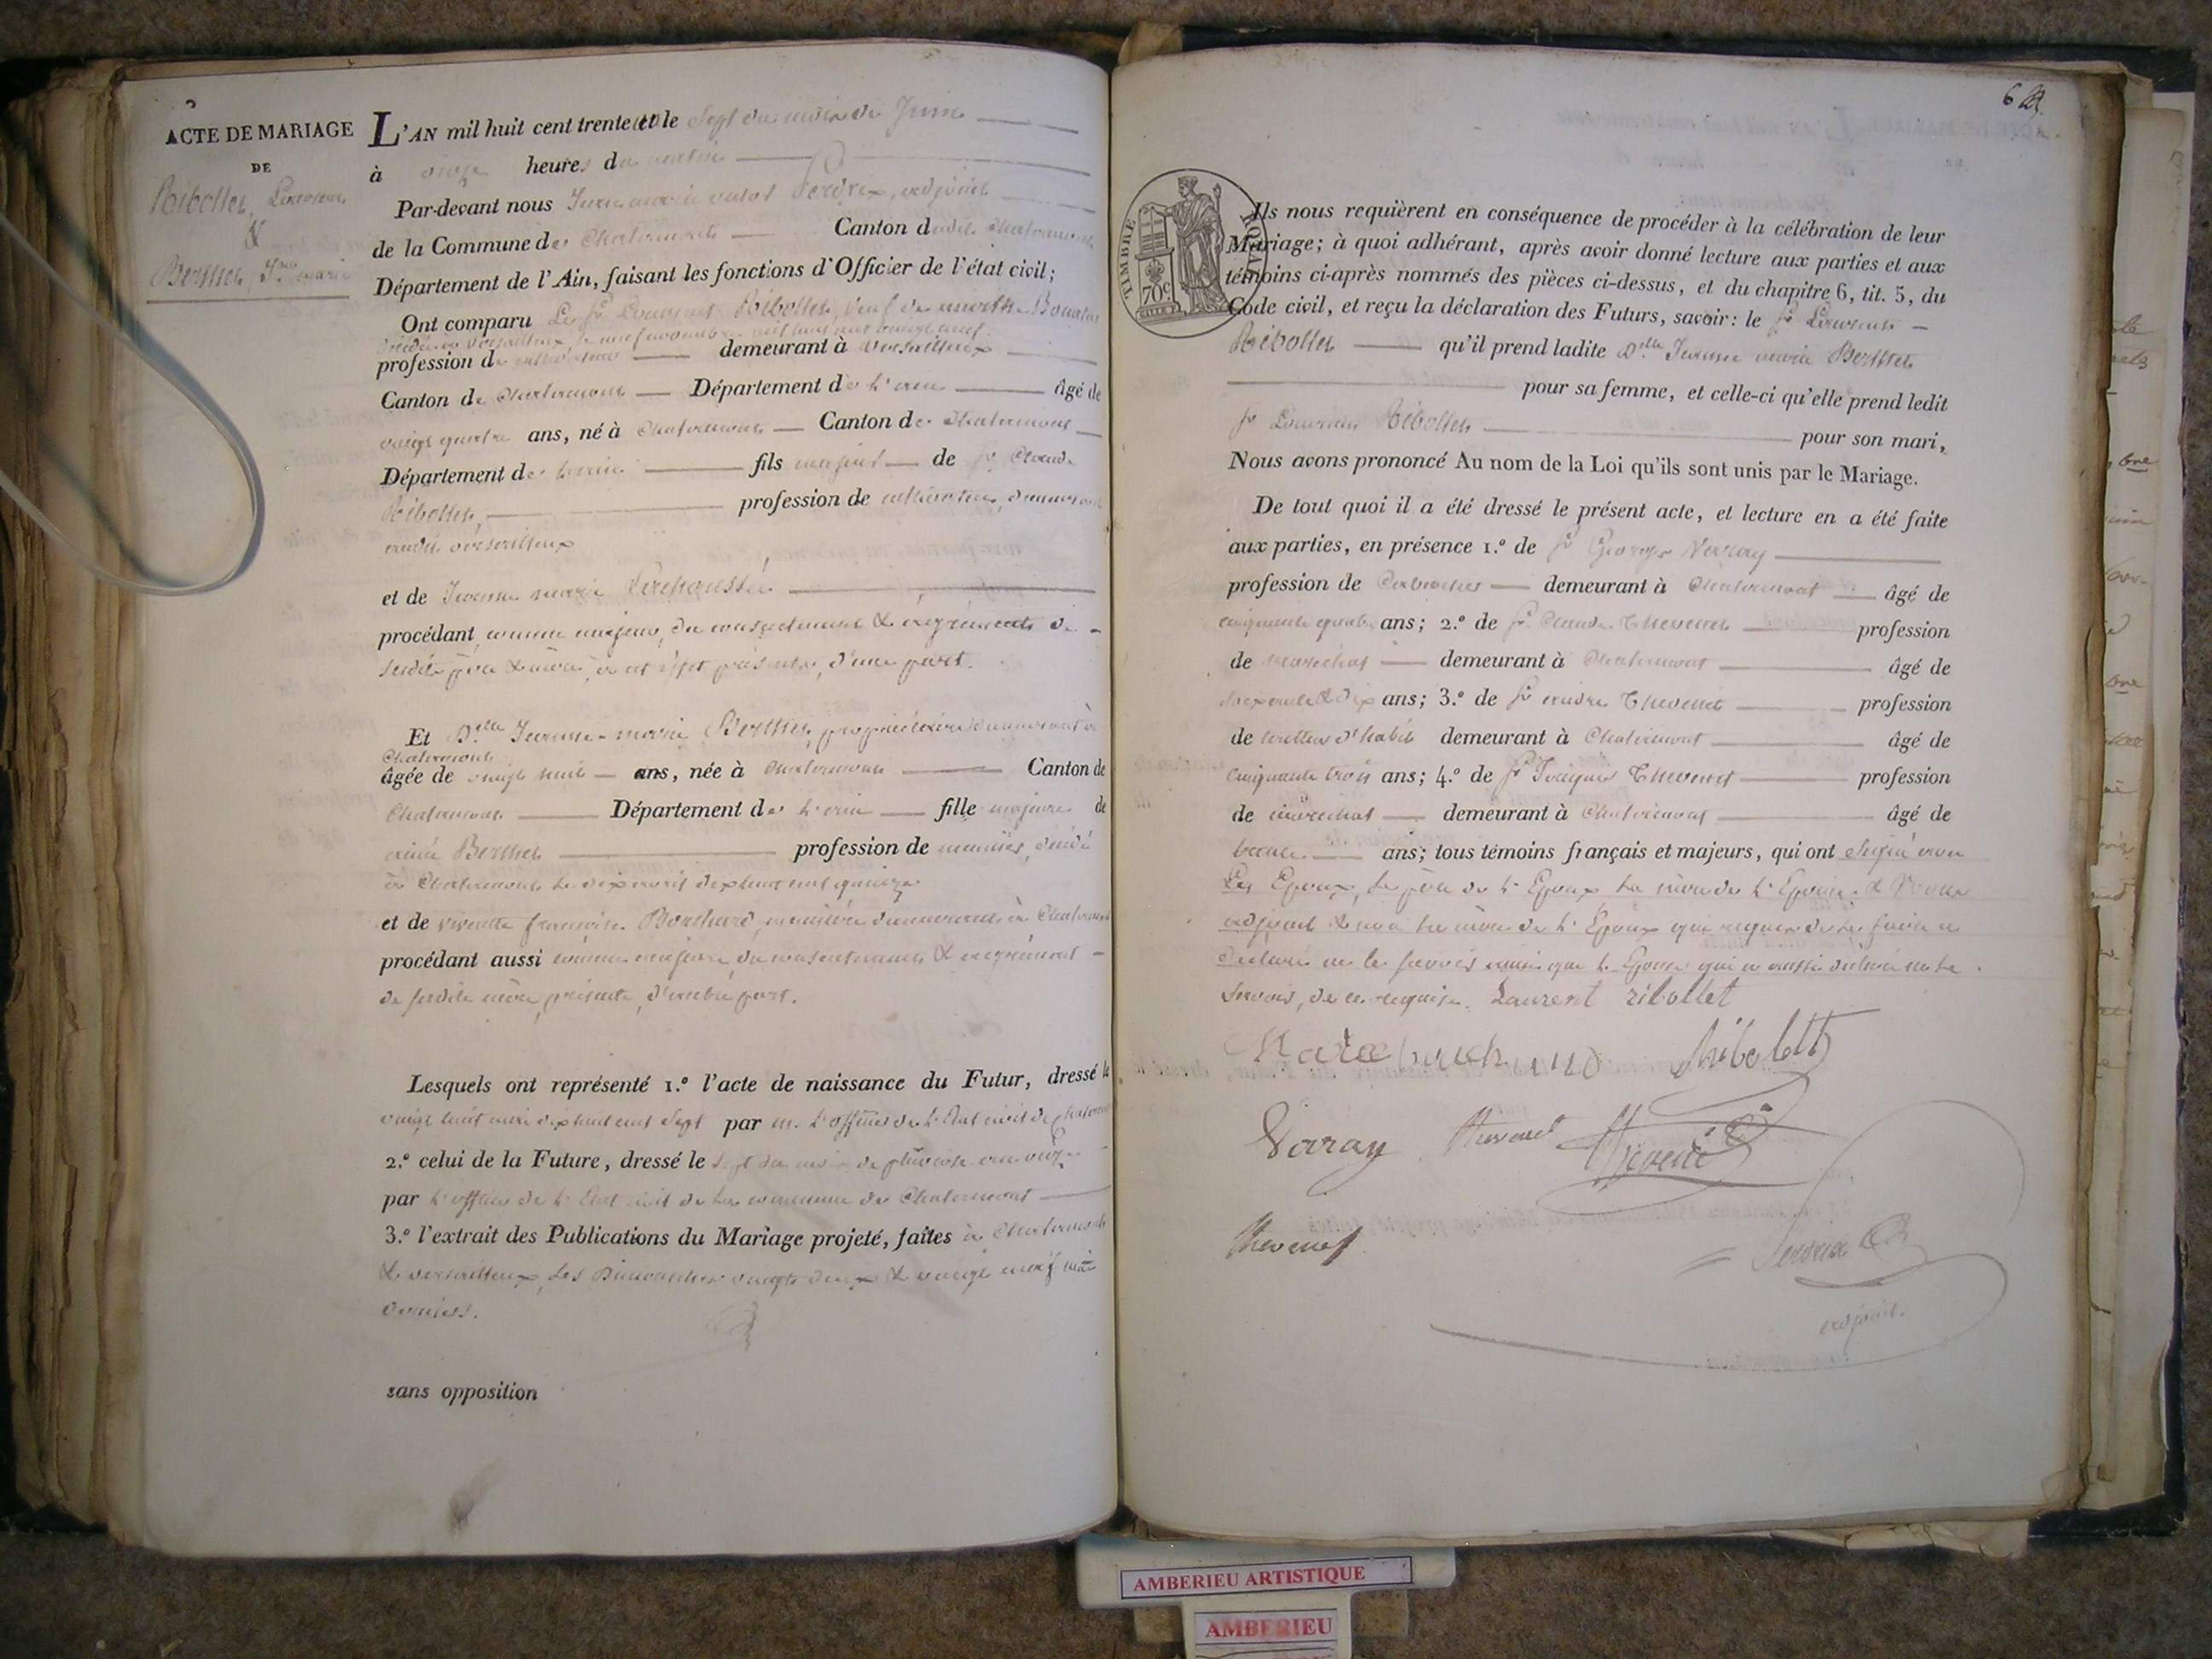 ACTE DE MARIAGE
DE
Ribollet, Laurent
&
Berthet, Jne marie
L'AN mil huit cent trente le sept du mois de Juin
à onze heures du matin
Par-devant nous Jean marie Perdrix, adjoint
de la Commune de Chalamont Canton dudit Chalamont
Département de l'Ain, faisant les fonctions d'Officier de l'état civil;
Ont comparu Le Sr Laurent Ribollet, veuf de marthe
décédée à Versailleux le neuf novembre mil huit cent vingt neuf
profession de cultivateur demeurant à Versailleux
Canton de Chalamont Département de l'ain âgé de
vingt quatre ans, né à Chalamont Canton de Chalamont
Département de l'ain fils majeur de Sr Claude
Ribollet, profession de cultivateur, demeurant
audit Versailleux
et de Jeanne marie
procédant comme majeur, du consentement & agrément de
sesdits père & mère, à cet effet présents, d'une part.
Et Dlle Jeanne-marie Berthet, propriétaire demeurant à
Chalamont
âgée de vingt huit ans, née à Chalamont Canton de
Chalamont Département de l'ain fille majeure de
Berthet profession de décédé
à Chalamont le dix avril dix huit cent quinze
et de françoise Bouchard, demeurant à Chalamont
procédant aussi comme majeure, du consentement & agrément
de sadite mère, présente, d'autre part.
Lesquels ont représenté 1.° l'acte de naissance du Futur, dressé le
vingt huit mai dix huit cent sept par m. l'officier de l'Etat civil de Chalamont
2.° celui de la Future, dressé le sept du mois de pluviose an onze
par l'officier de l'Etat civil de la commune de Chalamont
3.° l'extrait des Publications du Mariage projeté, faites à Chalamont
& Versailleux, les Dimanches vingt deux & vingt neuf mai
derniers.
sans opposition
6
TIMBRE ROYAL
70c
Ils nous requièrent en conséquence de procéder à la célébration de leur
Mariage; à quoi adhérant, après avoir donné lecture aux parties et aux
témoins ci-après nommés des pièces ci-dessus, et du chapitre 6, tit. 5, du
Code civil, et reçu la déclaration des Futurs, savoir: le Sr Laurent
Ribollet qu'il prend ladite Dlle Jeanne marie Berthet
pour sa femme, et celle-ci qu'elle prend ledit
Sr Laurent Ribollet pour son mari,
Nous avons prononcé Au nom de la Loi qu'ils sont unis par le Mariage.
De tout quoi il a été dressé le présent acte, et lecture en a été faite
aux parties, en présence 1.° de Sr George
profession de demeurant à Chalamont âgé de
cinquante quatre ans; 2.° de Sr Claude Thevenet profession
de marechal demeurant à Chalamont âgé de
soixante & dix ans; 3.° de Sr andre Thevenet profession
de tailleur d'habits demeurant à Chalamont âgé de
cinquante trois ans; 4.° de Sr Jacques Thevenet profession
de marechal demeurant à Chalamont âgé de
trente ans; tous témoins français et majeurs, qui ont signé avec
Les Epoux, le père de l'Epoux la mère de l'Epouse & Nous
adjoint & non la mère de l'Epoux qui requise de le faire a
déclaré ne le savoir ainsi que l'Epouse qui a aussi déclaré ne le
savoir, de ce requise. Laurent ribollet
bouchard Ribollet
Varay Thevenet Thevenet
Thevenet Perdrix
adjoint.
AMBERIEU ARTISTIQUE
AMBERIEU